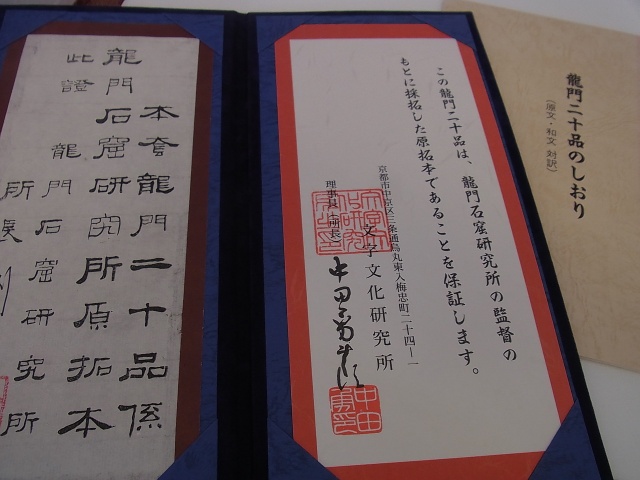 本套龍門二十品係
龍門石窟研究所原拓本
此證
龍門石窟研究所
所長
この龍門二十品は、龍門石窟研究所の監督の
もとに採拓した原拓本であることを保証します。
京都市中京区三条通烏丸東入梅忠町二十四ー一
文字文化研究所
理事長(所長) 中田
龍門二十品のしおり
〔原文・和文 対訳〕